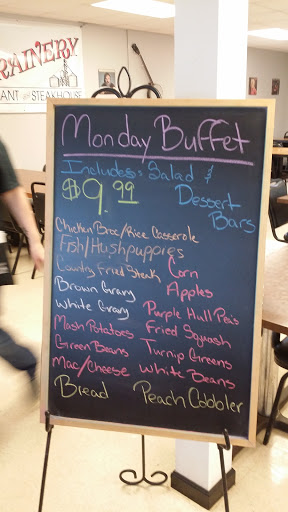 RAINERY
ANT AND STEAKHOUSE
Monday Buffet
Includes: Salad &
$9.99
Dessert
Bars
Chicken Broc/Rice Casserole
Fish/Hushpuppies
Country Fried Steak
Corn
Apples
Brown Gravy
White Gravy
Purple Hull Peas
Mash Potatoes
Fried Squash
Green Beans
Turnip Greens
Mac/Cheese
White Beans
Bread
Peach Cobbler